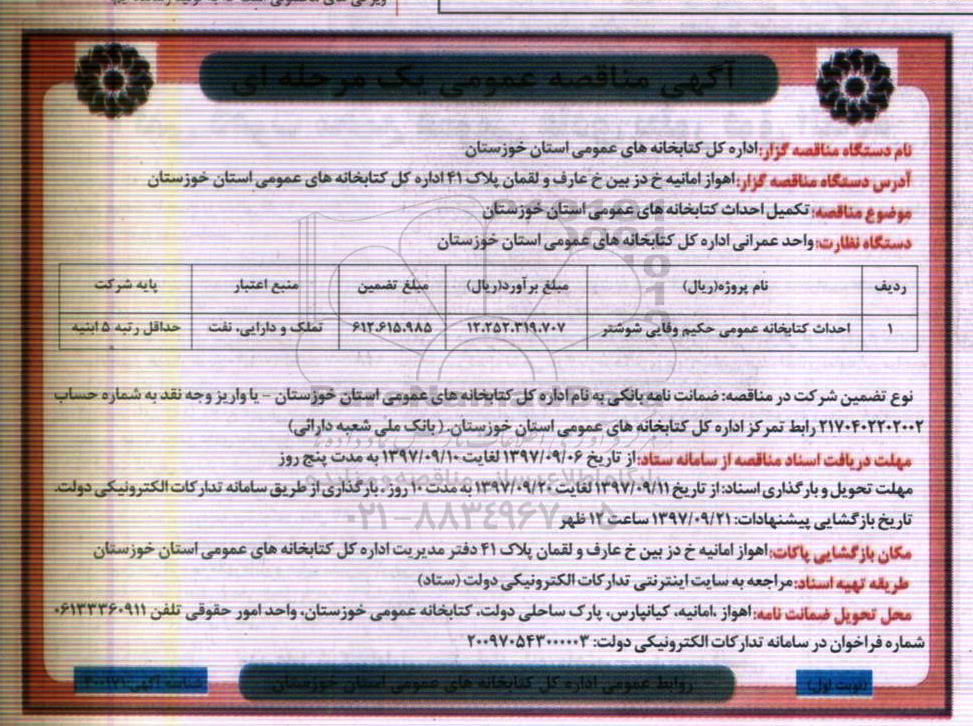 آگهی مناقصه عمومی یک مرحله ای
نام دستگاه مناقصه گزار: اداره کل کتابخانه های عمومی استان خوزستان
آدرس دستگاه مناقصه گزار: اهواز امانیه خ دز بین خ عارف و لقمان پلاک ۴۱ اداره کل کتابخانه های عمومی استان خوزستان
موضوع مناقصه: تکمیل احداث کتابخانه های عمومی استان خوزستان
دستگاه نظارت: واحد عمرانی اداره کل کتابخانه های عمومی استان خوزستان
ردیف نام پروژه(ریال) مبلغ برآورد(ریال) مبلغ تضمین منبع اعتبار پایه شرکت
۱ احداث کتابخانه عمومی حکیم وفایی شوشتر ۱۲.۲۵۲.۳۱۹.۷۰۷ ۶۱۲.۶۱۵.۹۸۵ تملک و دارایی، نفت حداقل رتبه ۵ ابنیه
نوع تضمین شرکت در مناقصه: ضمانت نامه بانکی به نام اداره کل کتابخانه های عمومی استان خوزستان - یا واریز وجه نقد به شماره حساب
۲۱۷۰۴۰۲۲۰۲۰۰۲ رابط تمرکز اداره کل کتابخانه های عمومی استان خوزستان. (بانک ملی شعبه دارائی)
مهلت دریافت اسناد مناقصه از سامانه ستاد: از تاریخ ۱۳۹۷/۰۹/۰۶ لغایت ۱۳۹۷/۰۹/۱۰ به مدت پنج روز
مهلت تحویل و بارگذاری اسناد: از تاریخ ۱۳۹۷/۰۹/۱۱ لغایت ۱۳۹۷/۰۹/۲۰ به مدت ۱۰ روز، بارگذاری از طریق سامانه تدارکات الکترونیکی دولت.
تاریخ بازگشایی پیشنهادات: ۱۳۹۷/۰۹/۲۱ ساعت ۱۲ ظهر
۰۲۱-۸۸۳۴۹۶۷۰-۵
مکان بازگشایی پاکات: اهواز امانیه خ دز بین خ عارف و لقمان پلاک ۴۱ دفتر مدیریت اداره کل کتابخانه های عمومی استان خوزستان
طریقه تهیه اسناد: مراجعه به سایت اینترنتی تدارکات الکترونیکی دولت (ستاد)
محل تحویل ضمانت نامه: اهواز ،امانیه، کیانپارس، پارک ساحلی دولت، کتابخانه عمومی خوزستان، واحد امور حقوقی تلفن ۰۶۱۳۳۳۶۰۹۱۱
شماره فراخوان در سامانه تدارکات الکترونیکی دولت: ۲۰۰۹۷۰۵۴۳۰۰۰۰۰۳
(نوبت اول)
روابط عمومی اداره کل کتابخانه های عمومی استان خوزستان
شناسه آگهی: